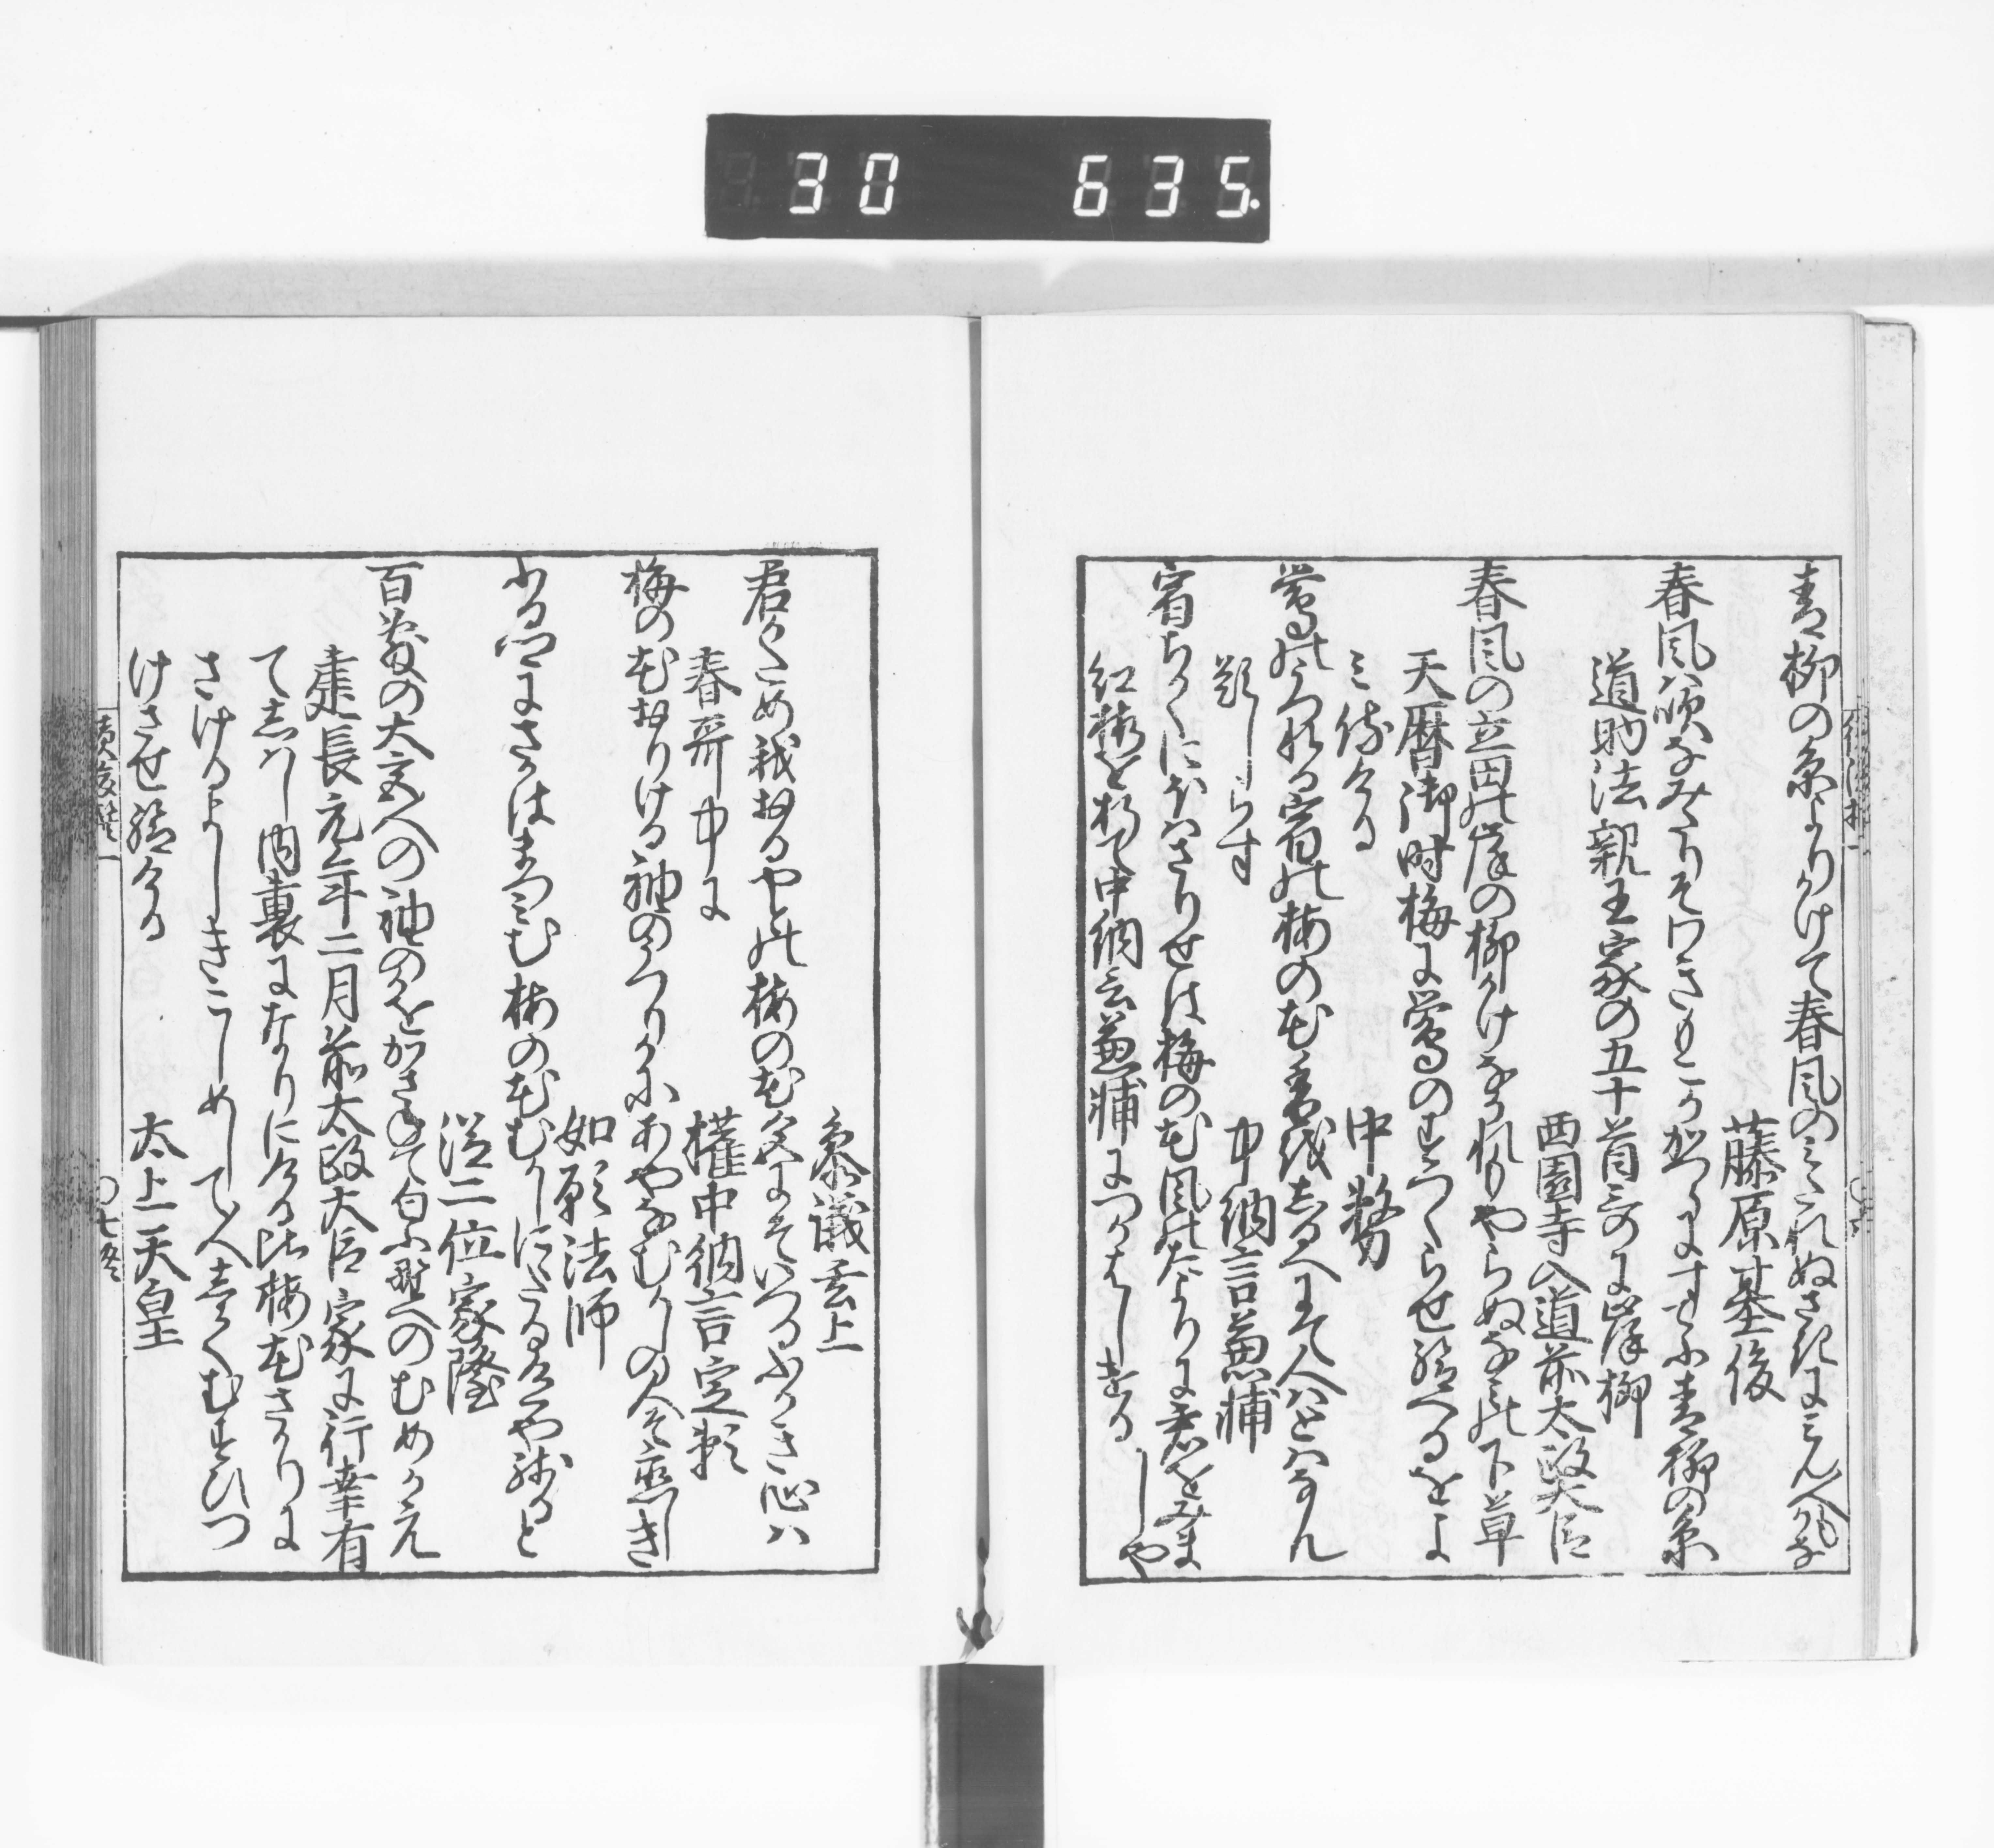 30 635.
青柳の糸よりかけて春風のみたれぬさきにみん人もかな
藤原基俊
春風は吹なみたりそわきもこかかつらにすてふ青柳の糸
道助法親王家の五十首哥に岸柳
西園寺入道前太政大臣
春風の立田の岸の柳かけなかれもやらぬなみの下草
天暦御時梅に鶯のすつくらせ給へるをよ
み侍ける
中務
鶯のうつれる宿の梅の花香をしるへにて人はとはなん
題しらす
中納言兼輔
宿ちかくにほはさりせは梅の花風のたよりに君をみまし
や
紅梅を折て中納言兼輔につかはしける
参議玄上
君かため我おるやとの梅の花色にそいつるふかき心は
春哥中に
権中納言定頼
梅の花おりける袖のうつりかにあやなむかしの人そ恋しき
如願法師
ふる郷にさかはまつみむ梅の花むかしににたる色や残ると
従二位家隆
百敷の大宮人の袖のかをかさねて匂ふ野へのむめかえ
建長元年二月前太政大臣家に行幸有
てしはし内裏になりにける比梅花さかりに
さけるよしきこしめして人しれすむすひつ
けさせ給ける
太上天皇
続後撰一